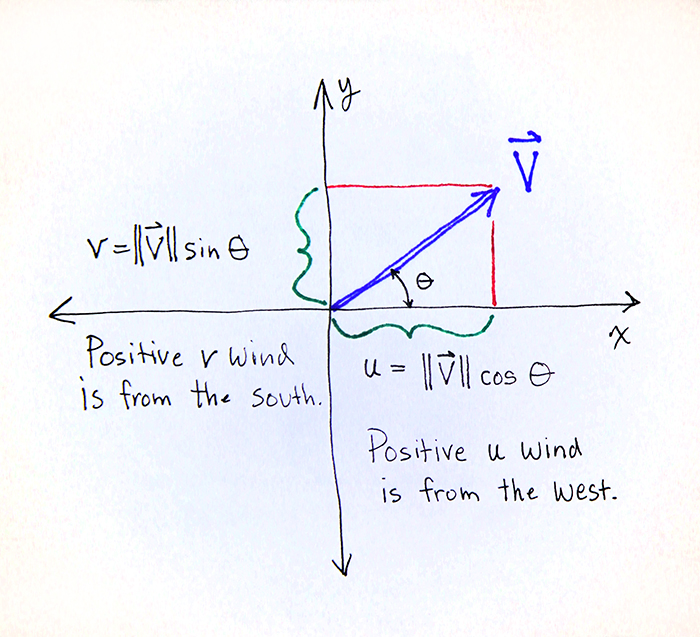 y
V⃗
v = ‖V⃗‖ sin θ
θ
x
Positive v wind
is from the south.
u = ‖V⃗‖ cos θ
Positive u wind
is from the west.